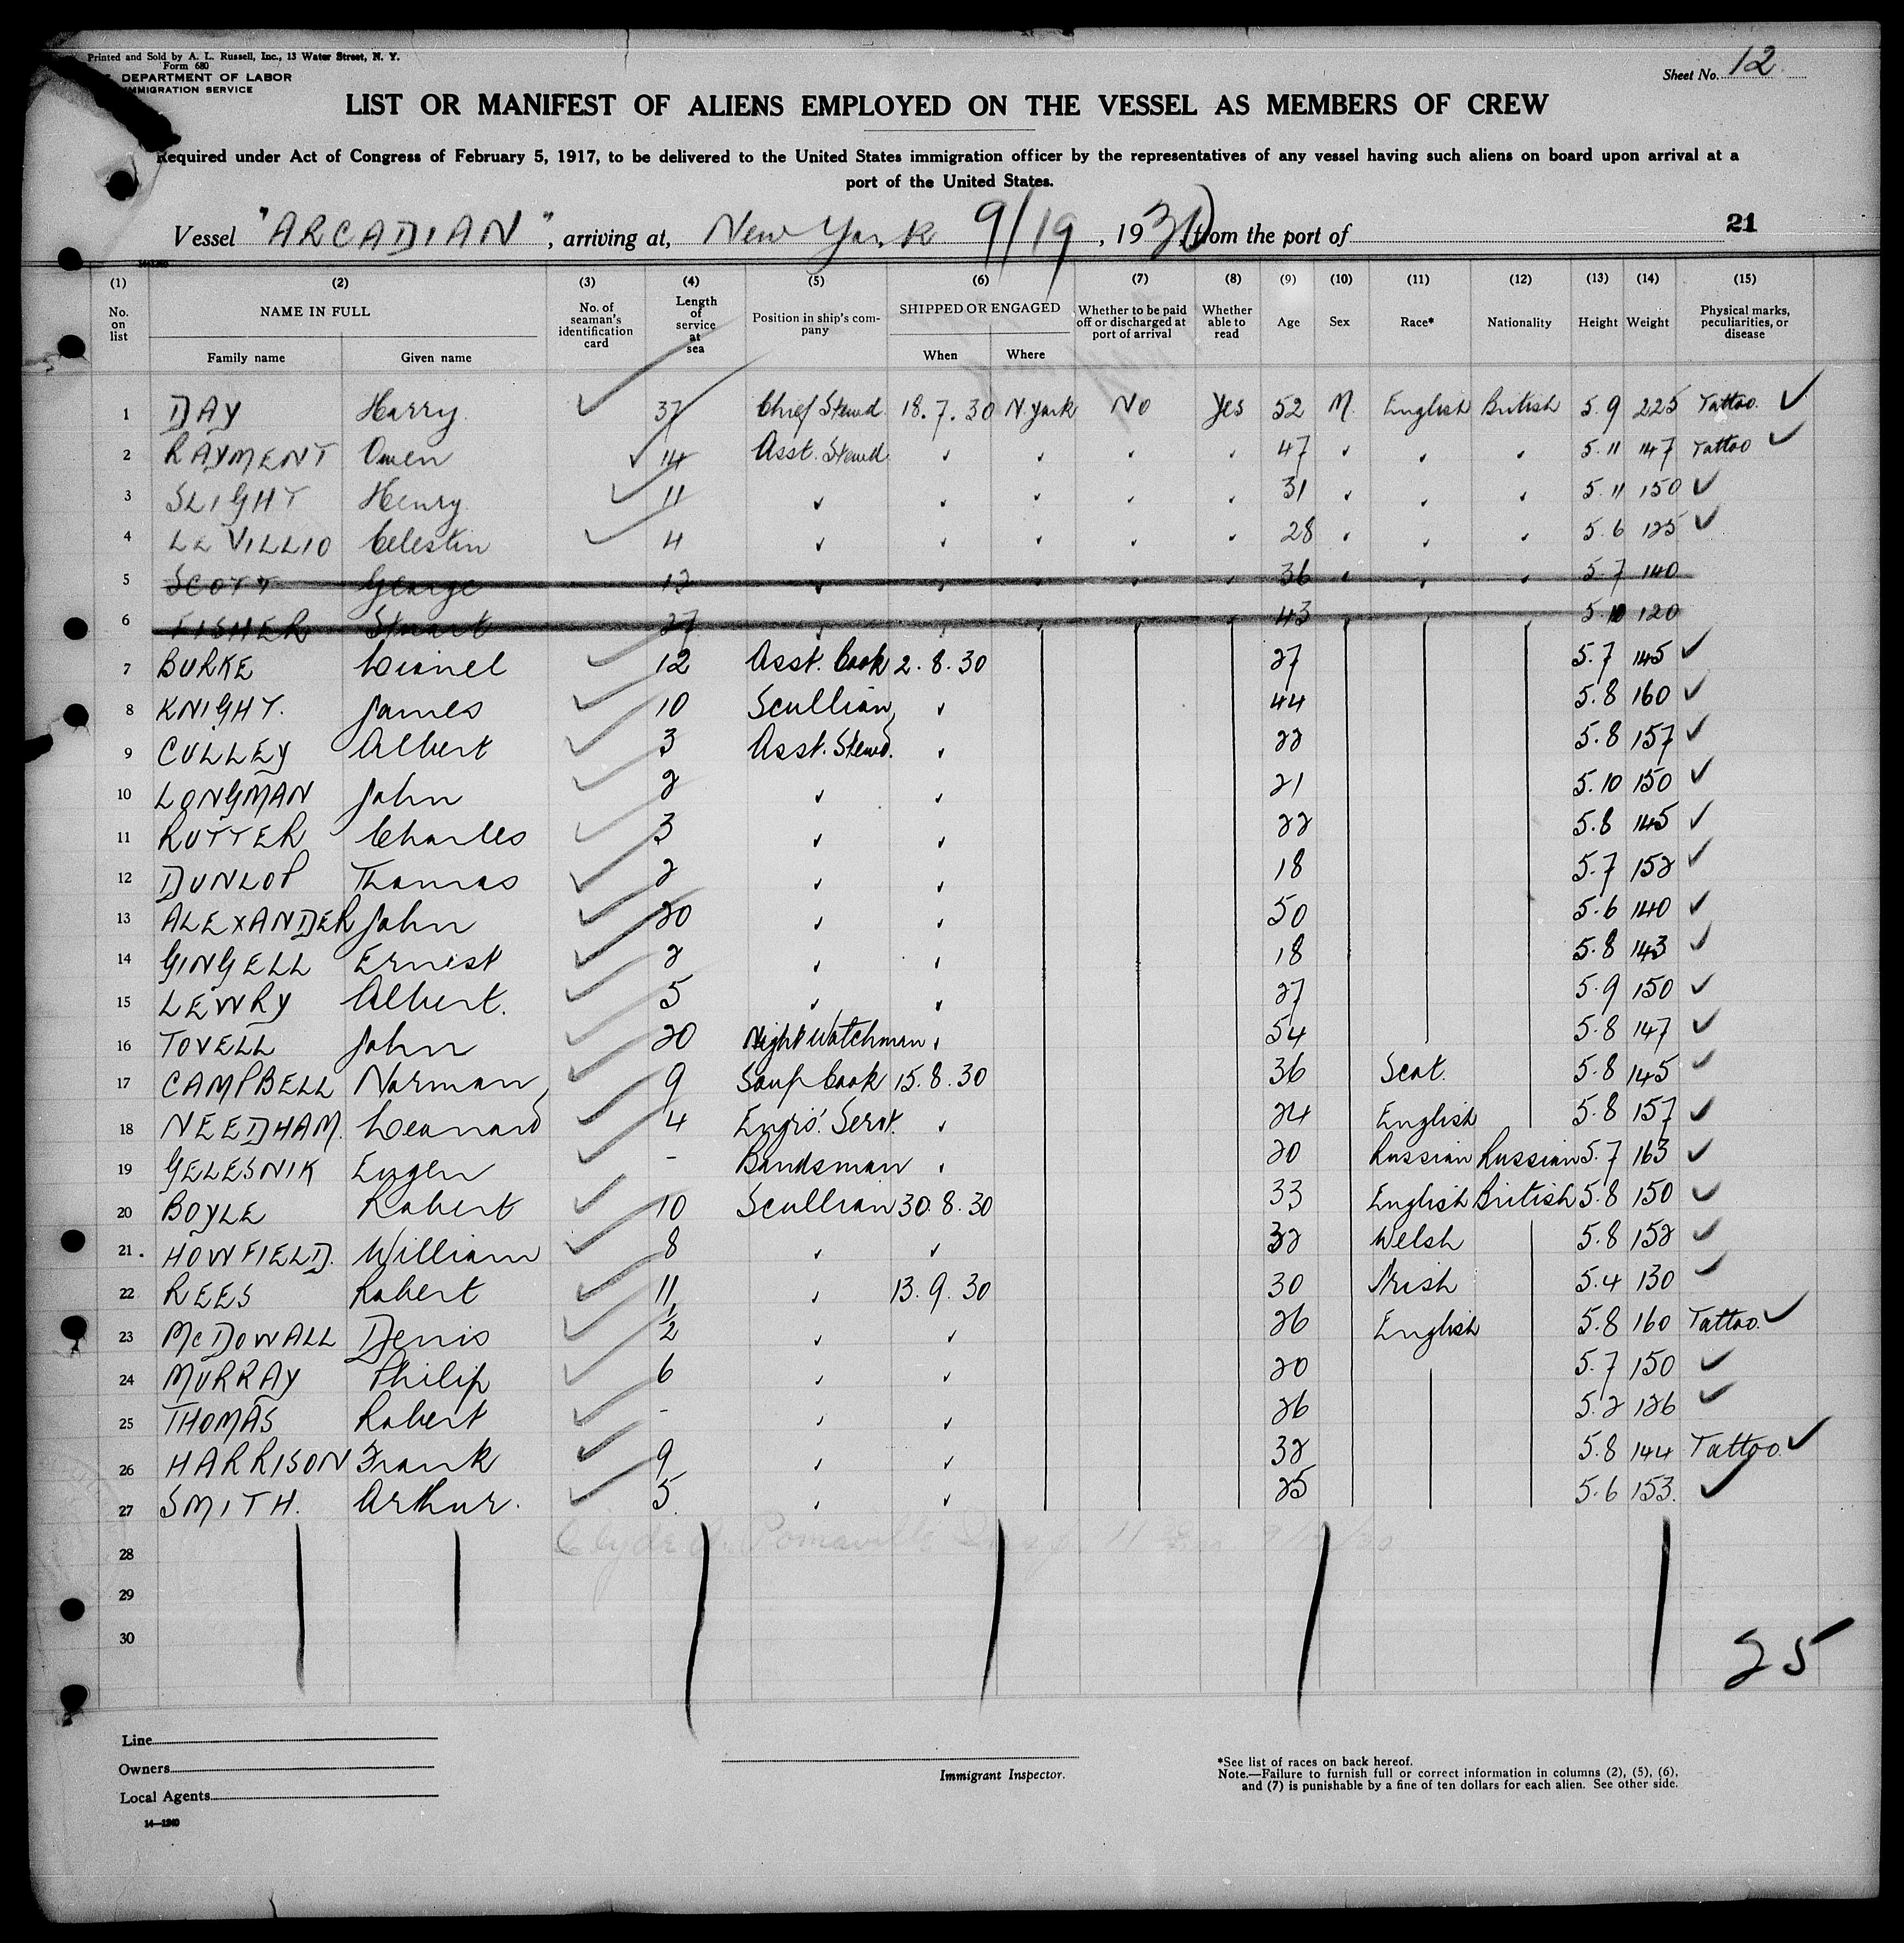 Printed and Sold by A. L. Russell, Inc., 13 Water Street, N. Y.
Form 680
DEPARTMENT OF LABOR
IMMIGRATION SERVICE
Sheet No. 12
LIST OR MANIFEST OF ALIENS EMPLOYED ON THE VESSEL AS MEMBERS OF CREW
Required under Act of Congress of February 5, 1917, to be delivered to the United States immigration officer by the representatives of any vessel having such aliens on board upon arrival at a
port of the United States.
Vessel "ARCADIAN", arriving at, New York 9/19, 1930, from the port of 21
(1) (2) (3) (4) (5) (6) (7) (8) (9) (10) (11) (12) (13) (14) (15)
No. on list NAME IN FULL Family name Given name No. of seaman's identification card Length of service at sea Position in ship's company SHIPPED OR ENGAGED When Where Whether to be paid off or discharged at port of arrival Whether able to read Age Sex Race* Nationality Height Weight Physical marks, peculiarities, or disease
1 DAY Harry ✓ 37 Chief Stewd 18.7.30 N. York No Yes 52 M English British 5.9 225 Tattoo ✓
2 RAYMENT Owen ✓ 14 Asst. Stewd ✓ ✓ ✓ ✓ 47 ✓ ✓ ✓ 5.11 147 Tattoo ✓
3 SLIGHT Henry ✓ 11 ✓ ✓ ✓ ✓ ✓ 31 ✓ ✓ ✓ 5.11 150 ✓
4 LE VILLIO Celestin ✓ 4 ✓ ✓ ✓ ✓ ✓ 28 ✓ ✓ ✓ 5.6 125 ✓
5 SCOTT George 12 ✓ ✓ ✓ ✓ ✓ 36 ✓ ✓ ✓ 5.7 140
6 FISHER Stuart 27 ✓ ✓ 43 5.10 120
7 BURKE Lionel ✓ 12 Asst. Cook 2.8.30 27 5.7 145 ✓
8 KNIGHT. James ✓ 10 Scullion ✓ 44 5.8 160 ✓
9 CULLEY Albert ✓ 3 Asst. Stewd. ✓ 22 5.8 157 ✓
10 LONGMAN John ✓ 2 ✓ ✓ 21 5.10 150 ✓
11 RUTTER Charles ✓ 3 ✓ ✓ 22 5.8 145 ✓
12 DUNLOP Thomas ✓ 2 ✓ ✓ 18 5.7 152 ✓
13 ALEXANDER John ✓ 20 ✓ ✓ 50 5.6 140 ✓
14 GINGELL Ernest ✓ 2 ✓ ✓ 18 5.8 143 ✓
15 LEWRY Albert. ✓ 5 ✓ ✓ 27 5.9 150 ✓
16 TOVELL John ✓ 20 Night Watchman ✓ 54 5.8 147 ✓
17 CAMPBELL Norman ✓ 9 Soup Cook 15.8.30 36 Scot. 5.8 145 ✓
18 NEEDHAM. Leonard ✓ 4 Engrs'. Servt. ✓ 24 English 5.8 157 ✓
19 GELESNIK Eugen ✓ - Bandsman ✓ 20 Russian Russian 5.7 163 ✓
20 BOYLE Robert ✓ 10 Scullion 30.8.30 33 English British 5.8 150 ✓
21. HOWFIELD. William ✓ 8 ✓ ✓ 32 Welsh 5.8 152 ✓
22 REES Robert ✓ 11 ✓ 13.9.30 30 Irish 5.4 130 ✓
23 McDOWALL Denis ✓ 1/2 ✓ ✓ 26 English 5.8 160 Tattoo. ✓
24 MURRAY Philip ✓ 6 ✓ ✓ 20 5.7 150 ✓
25 THOMAS Robert ✓ - ✓ ✓ 26 5.2 126 ✓
26 HARRISON Frank ✓ 9 ✓ ✓ 32 5.8 144 Tattoo. ✓
27 SMITH. Arthur. ✓ 5 ✓ ✓ 25 5.6 153. ✓
28
29
30
25
Line
Owners
Local Agents
14—1240
Immigrant Inspector.
*See list of races on back hereof.
Note.—Failure to furnish full or correct information in columns (2), (5), (6),
and (7) is punishable by a fine of ten dollars for each alien. See other side.